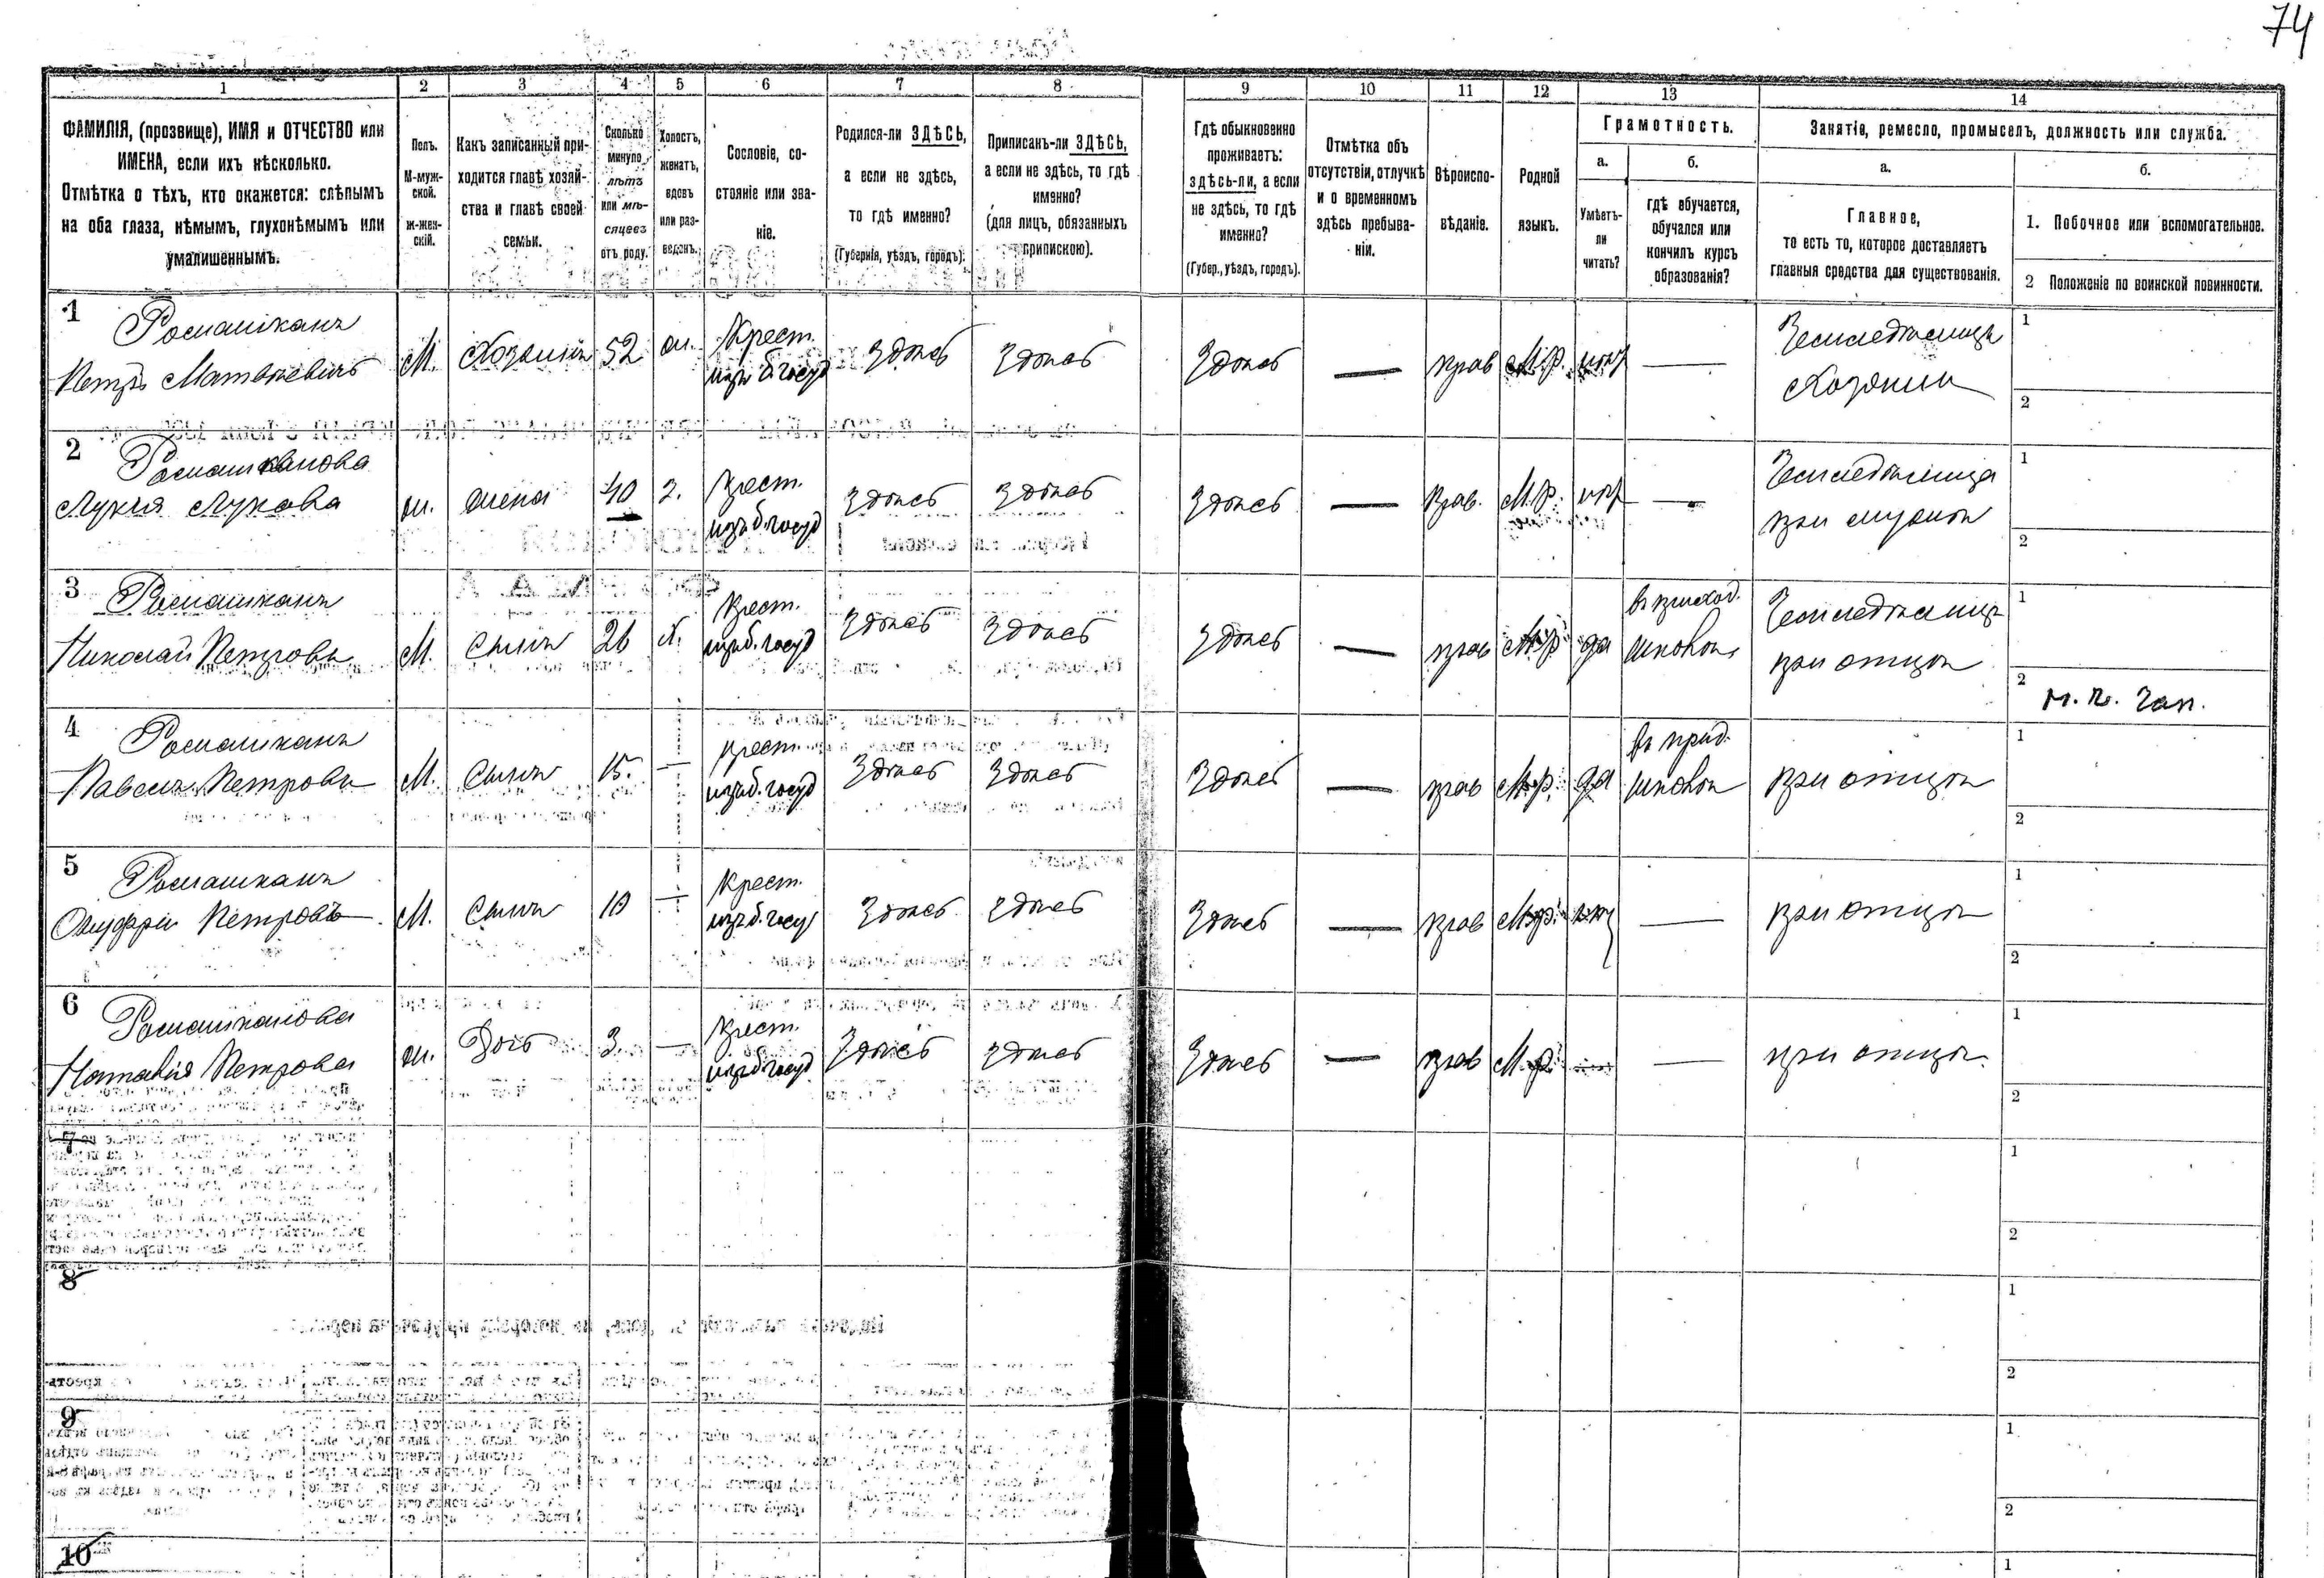 74
1 2 3 4 5 6 7 8 9 10 11 12 13 14
ФАМИЛІЯ, (прозвище), ИМЯ и ОТЧЕСТВО или
ИМЕНА, если ихъ нѣсколько.
Отмѣтка о тѣхъ, кто окажется: слѣпымъ
на оба глаза, нѣмымъ, глухонѣмымъ или
умалишеннымъ.
Полъ.
М-муж-
ской.
ж-жен-
скій.
Какъ записанный при-
ходится главѣ хозяй-
ства и главѣ своей
семьи.
Сколько
минуло
лѣтъ
или мѣ-
сяцевъ
отъ роду.
Холостъ,
женатъ,
вдовъ
или раз-
веденъ.
Сословіе, со-
стояніе или зва-
ніе.
Родился-ли ЗДѢСЬ,
а если не здѣсь,
то гдѣ именно?
(Губернія, уѣздъ, городъ).
Приписанъ-ли ЗДѢСЬ,
а если не здѣсь, то гдѣ
именно?
(для лицъ, обязанныхъ
припискою).
Гдѣ обыкновенно
проживаетъ:
здѣсь-ли, а если
не здѣсь, то гдѣ
именно?
(Губер., уѣздъ, городъ).
Отмѣтка объ
отсутствіи, отлучкѣ
и о временномъ
здѣсь пребыва-
ніи.
Вѣроиспо-
вѣданіе.
Родной
языкъ.
Грамотность.
а.
Умѣетъ-
ли
читать?
б.
гдѣ обучается,
обучался или
кончилъ курсъ
образованія?
Занятіе, ремесло, промыселъ, должность или служба.
а.
Главное,
то есть то, которое доставляетъ
главныя средства для существованія.
б.
1. Побочное или вспомогательное.
2 Положеніе по воинской повинности.
1 Ромашканъ Крест. Земледѣлецъ 1
Петръ Матвѣевичъ М. Хозяинъ 52 ж. изъ б. госуд Здѣсь Здѣсь Здѣсь — прав М.р. нѣт — Хозяинъ 2
2 Ромашканова Крест. Земледѣлица 1
Лукія Лукова ж. жена 40 з. изъ б. госуд Здѣсь Здѣсь Здѣсь — прав. М.р. нѣт — при мужѣ 2
3 Ромашканъ Крест. въ приход. Земледѣлецъ 1
Николай Петровъ М. Сынъ 26 х. изъ б. госуд Здѣсь Здѣсь Здѣсь — прав М.р да школѣ при отцѣ 2
4 Ромашканъ крест. въ приод. 1
Павелъ Петровъ М. Сынъ 15. — изъ б. госуд Здѣсь Здѣсь Здѣсь — прав М.р. да школѣ при отцѣ 2
5 Ромашканъ Крест. 1
Онуфри Петровъ М. Сынъ 10 — изъ б. госуд Здѣсь Здѣсь Здѣсь — прав М.р. — при отцѣ 2
6 Ромашканова Крест. 1
Наталія Петрова ж. Дочь 3. — изъ б. госуд Здѣсь Здѣсь Здѣсь — прав М.р. — — при отцѣ. 2
1
2
8 1
2
9 1
2
10 1